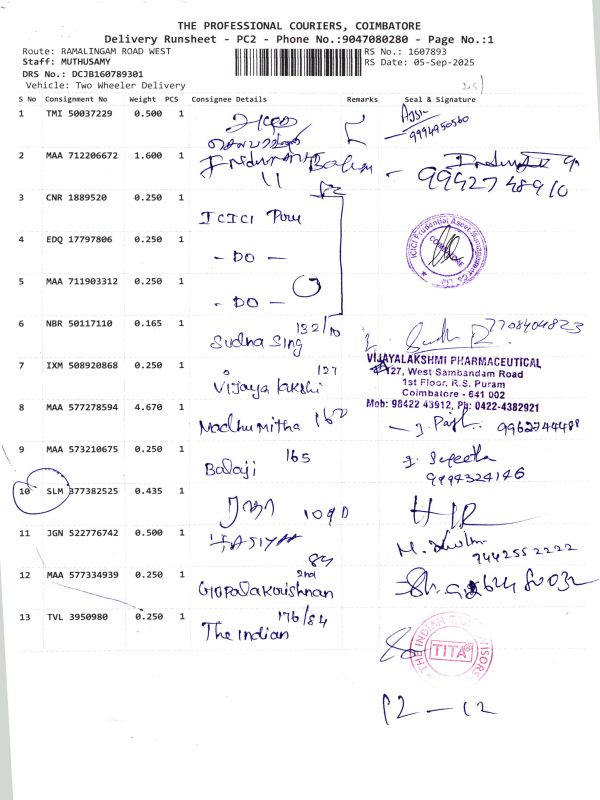 THE PROFESSIONAL COURIERS, COIMBATORE
Delivery Runsheet - PC2 - Phone No.:9047080280 - Page No.:1
Route: RAMALINGAM ROAD WEST RS No.: 1607893
Staff: MUTHUSAMY RS Date: 05-Sep-2025
DRS No.: DCJB160789301
Vehicle: Two Wheeler Delivery
S No Consignment No Weight PCS Consignee Details Remarks Seal & Signature
1 TMI 50037229 0.500 1
9994950560
2 MAA 712206672 1.600 1
9942748910
3 CNR 1889520 0.250 1 ICICI Pru
4 EDQ 17797806 0.250 1 - DO -
ICICI Prudential Asset Management Co. Ltd.
COIMBATORE
5 MAA 711903312 0.250 1 - DO -
6 NBR 50117110 0.165 1 Sudha Sing 132/10 7708404823
7 IXM 508920868 0.250 1 Vijaya lakshi 127
VIJAYALAKSHMI PHARMACEUTICAL
127, West Sambandam Road
1st Floor, R.S. Puram
Coimbatore - 641 002
Mob: 98422 43912, Ph: 0422-4382921
8 MAA 577278594 4.670 1 Madhumitha 160 9962744488
9 MAA 573210675 0.250 1 Balaji 165
9994324146
10 SLM 377382525 0.435 1 109D
11 JGN 522776742 0.500 1
9442552222
12 MAA 577334939 0.250 1 Gopalakrishnan 2nd 84
13 TVL 3950980 0.250 1 The Indian 176/84
TITA
P2 - 12